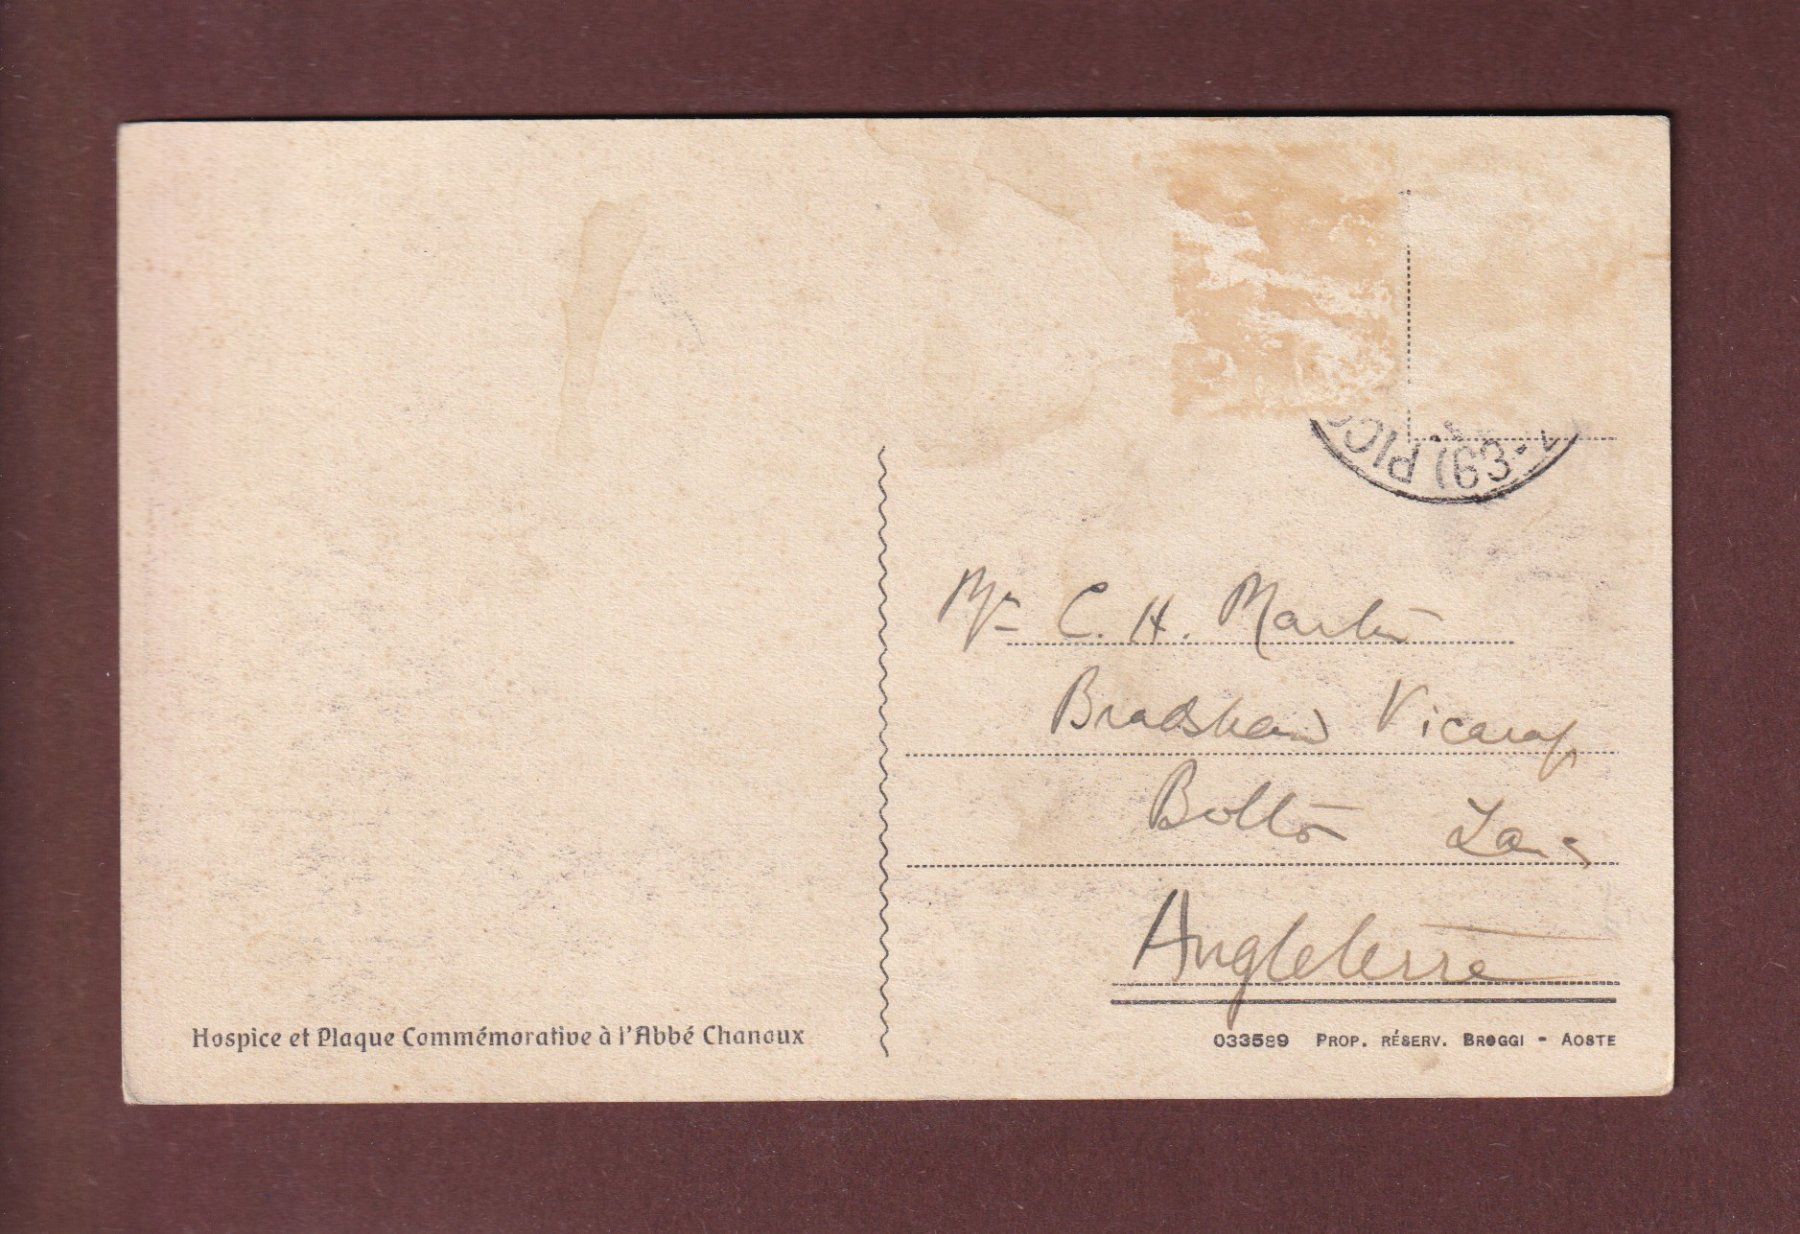 (63-1
PICC
Mr C. H. Martin
Bradshaw Vicarage
Bolton Lancs
Angleterre
Hospice et Plaque Commémorative à l'Abbé Chanoux
033589 PROP. RÉSERV. BROGGI - AOSTE